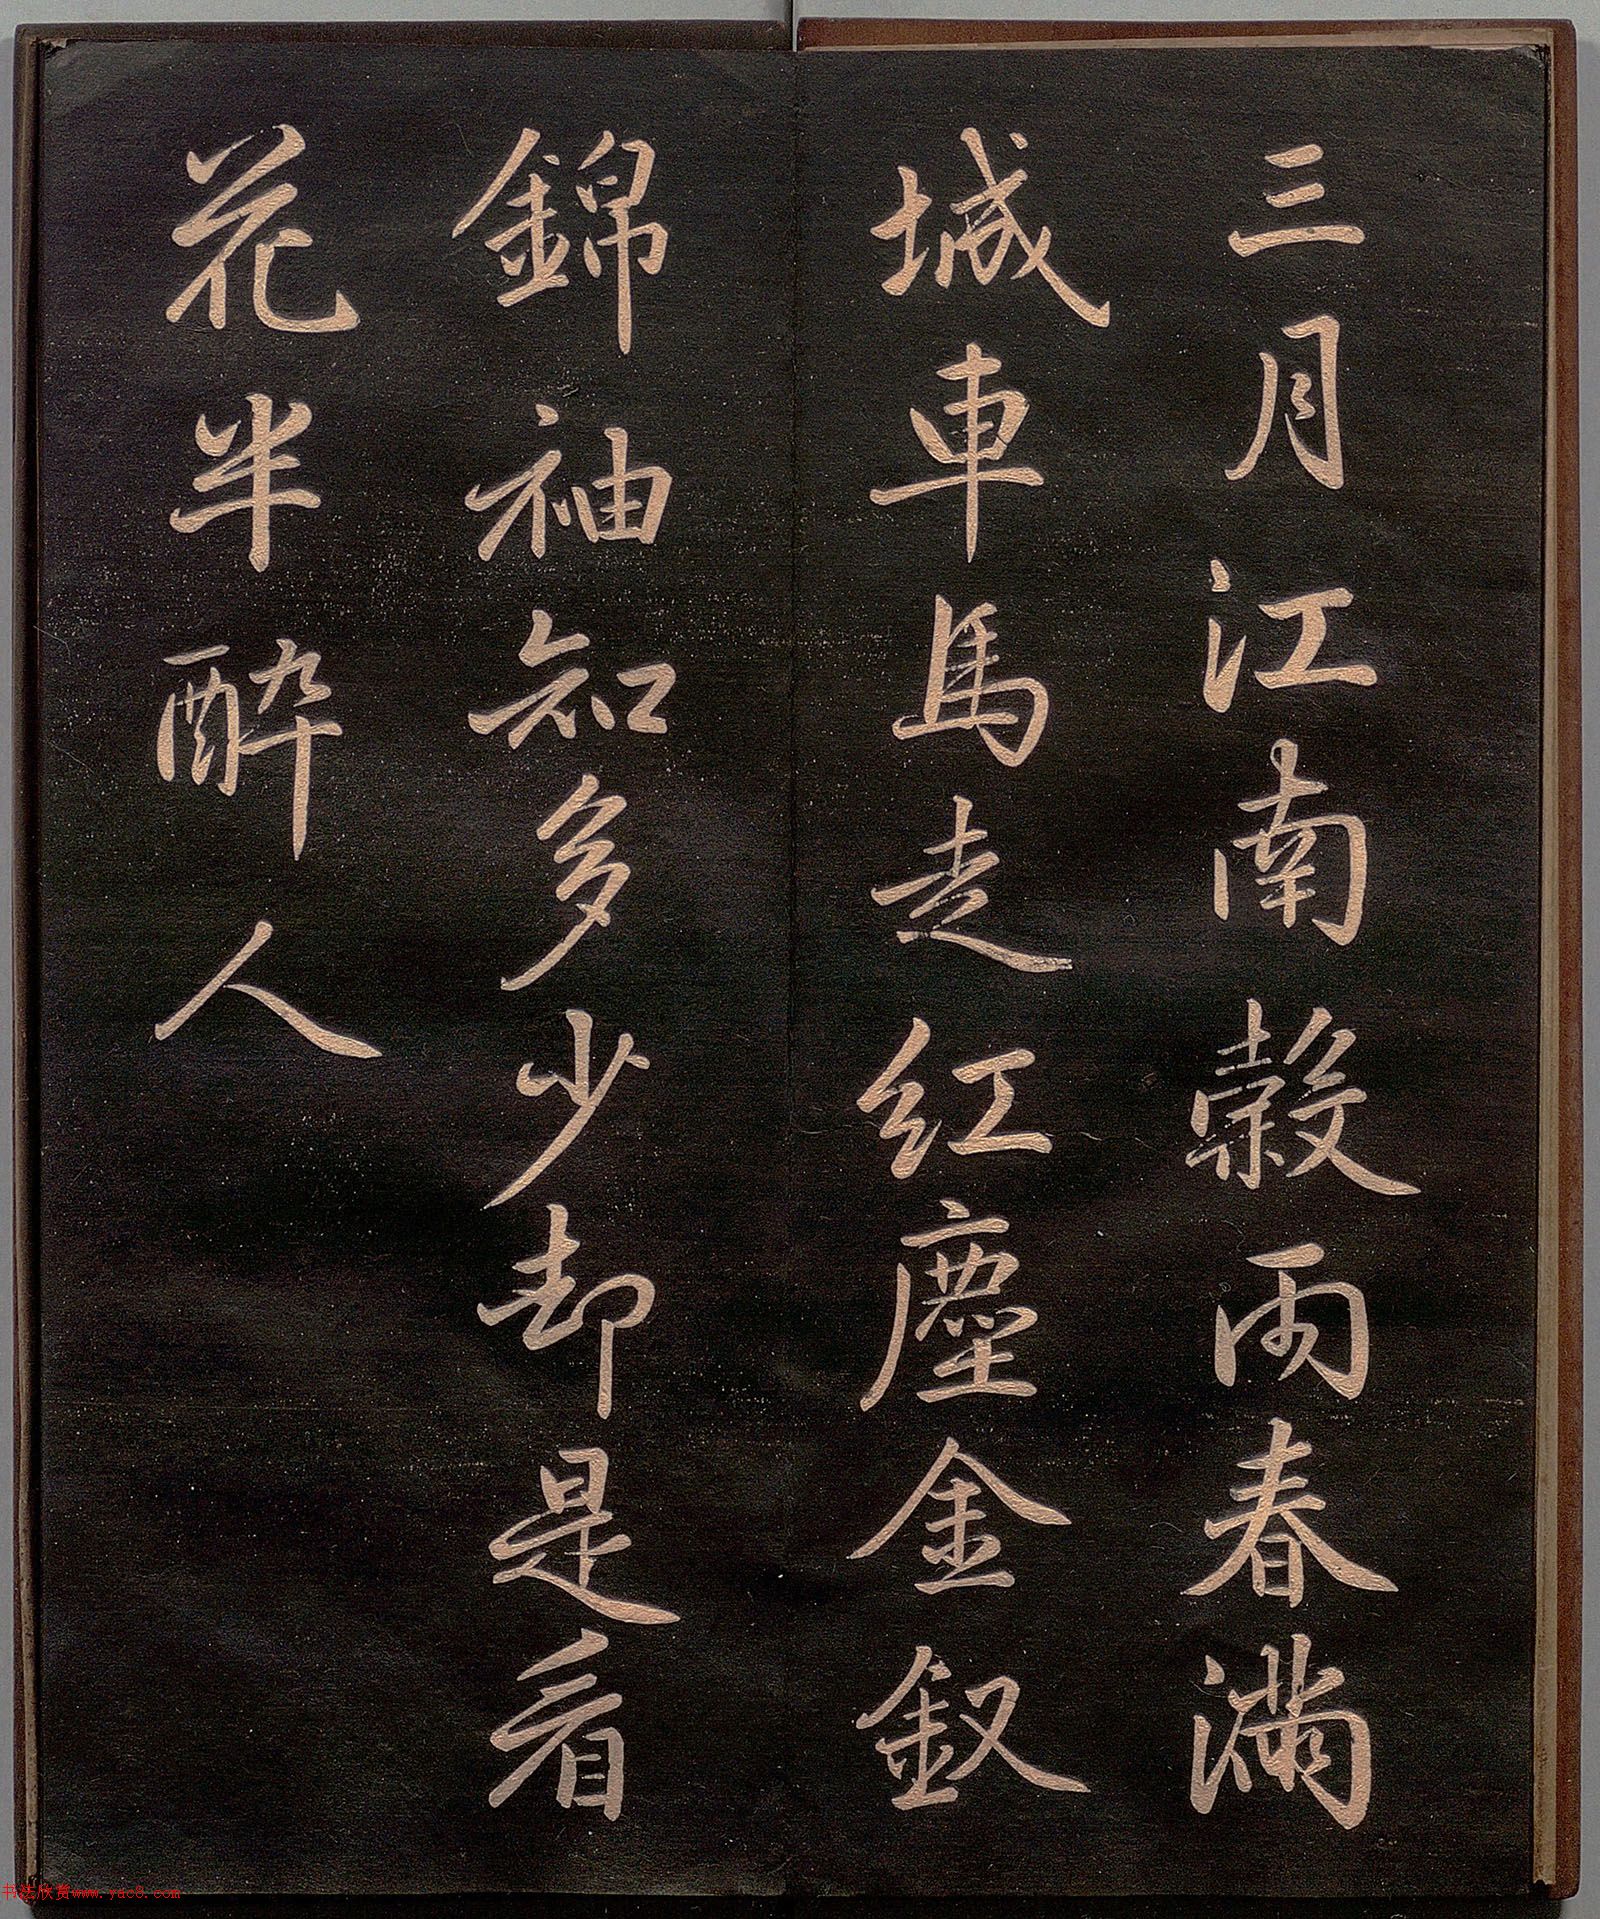 三月江南穀雨春滿
城車馬走紅塵金釵
錦袖知多少却是看
花半醉人
书法欣赏www.yac8.com